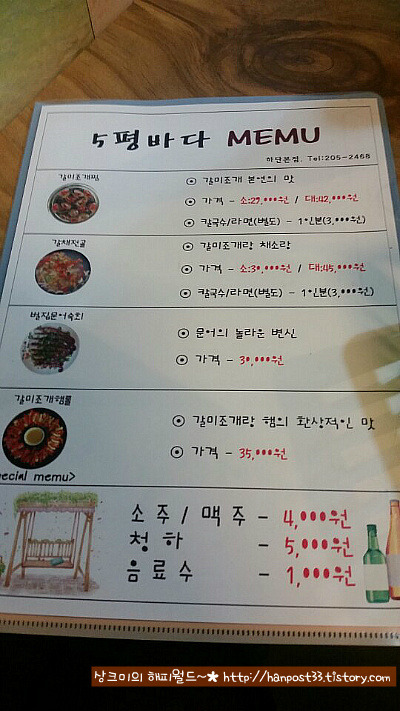 5평바다 MEMU
하단본점. Tel:205-2468
갈미조개찜
⊙ 갈미조개 본연의 맛
⊙ 가격 - 소:27,000원 / 대:42,000원
⊙ 칼국수/라면(별도) - 1인분(3,000원)
갈채전골
⊙ 갈미조개랑 채소랑
⊙ 가격 - 소:30,000원 / 대:45,000원
⊙ 칼국수/라면(별도) - 1인분(3,000원)
벌집문어숙회
⊙ 문어의 놀라운 변신
⊙ 가격 - 30,000원
갈미조개햄롤
⊙ 갈미조개랑 햄의 환상적인 맛
⊙ 가격 - 35,000원
ecial memu>
소주/맥주 - 4,000원
청하 - 5,000원
음료수 - 1,000원
상크미의 해피월드~★ http://hanpost33.tistory.com